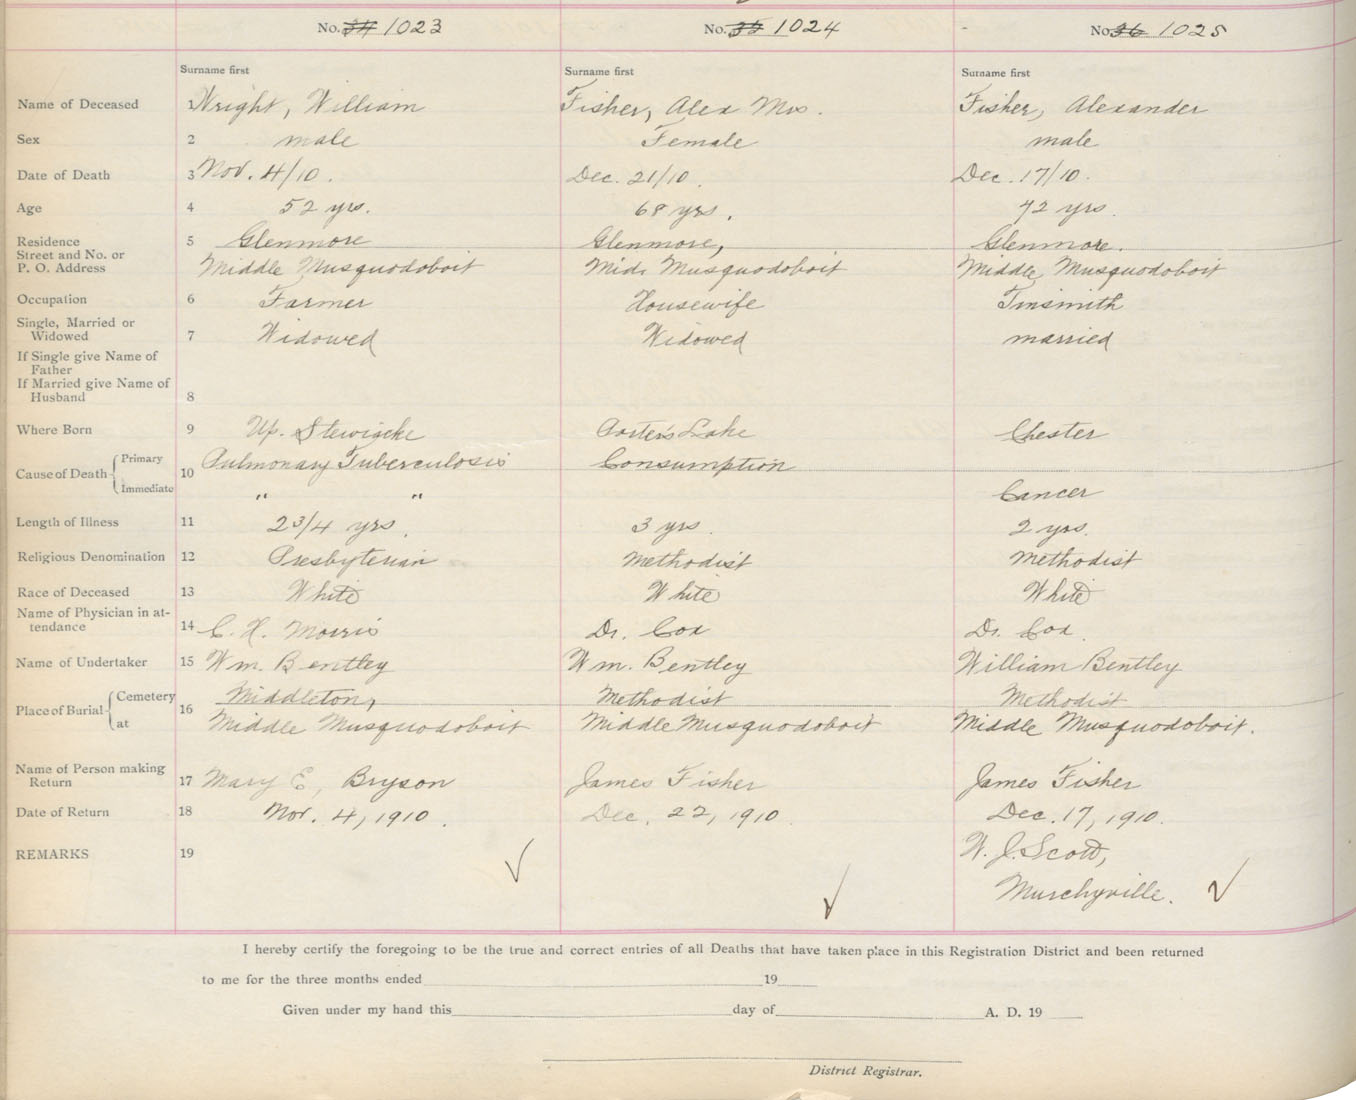 No. 34 1023 No. 35 1024 No. 36 1025
Surname first Surname first Surname first
Name of Deceased 1 Wright, William Fisher, Alex Mrs. Fisher, Alexander
Sex 2 male Female male
Date of Death 3 Nov. 4/10. Dec. 21/10. Dec. 17/10.
Age 4 52 yrs. 68 yrs. 72 yrs.
Residence 5 Glenmore Glenmore, Glenmore.
Street and No. or
P. O. Address Middle Musquodoboit Mid. Musquodoboit Middle Musquodoboit
Occupation 6 Farmer Housewife Tinsmith
Single, Married or
Widowed 7 Widowed Widowed married
If Single give Name of
Father
If Married give Name of
Husband 8
Where Born 9 Up. Stewiacke Porters Lake Chester
Cause of Death Primary 10 Pulmonary Tuberculosis Consumption
Immediate " " Cancer
Length of Illness 11 2 3/4 yrs. 3 yrs. 2 yrs.
Religious Denomination 12 Presbyterian Methodist Methodist
Race of Deceased 13 White White White
Name of Physician in at-
tendance 14 C. H. Morris Dr. Cox Dr. Cox.
Name of Undertaker 15 Wm. Bentley Wm. Bentley William Bentley
Place of Burial Cemetery 16 Middleton, Methodist Methodist
at Middle Musquodoboit Middle Musquodoboit Middle Musquodoboit.
Name of Person making
Return 17 Mary E, Bryson James Fisher James Fisher
Date of Return 18 Nov. 4, 1910. Dec. 22, 1910. Dec. 17, 1910.
REMARKS 19 W. J. Scott,
Murchyville.
I hereby certify the foregoing to be the true and correct entries of all Deaths that have taken place in this Registration District and been returned
to me for the three months ended 19
Given under my hand this day of A. D. 19
District Registrar.